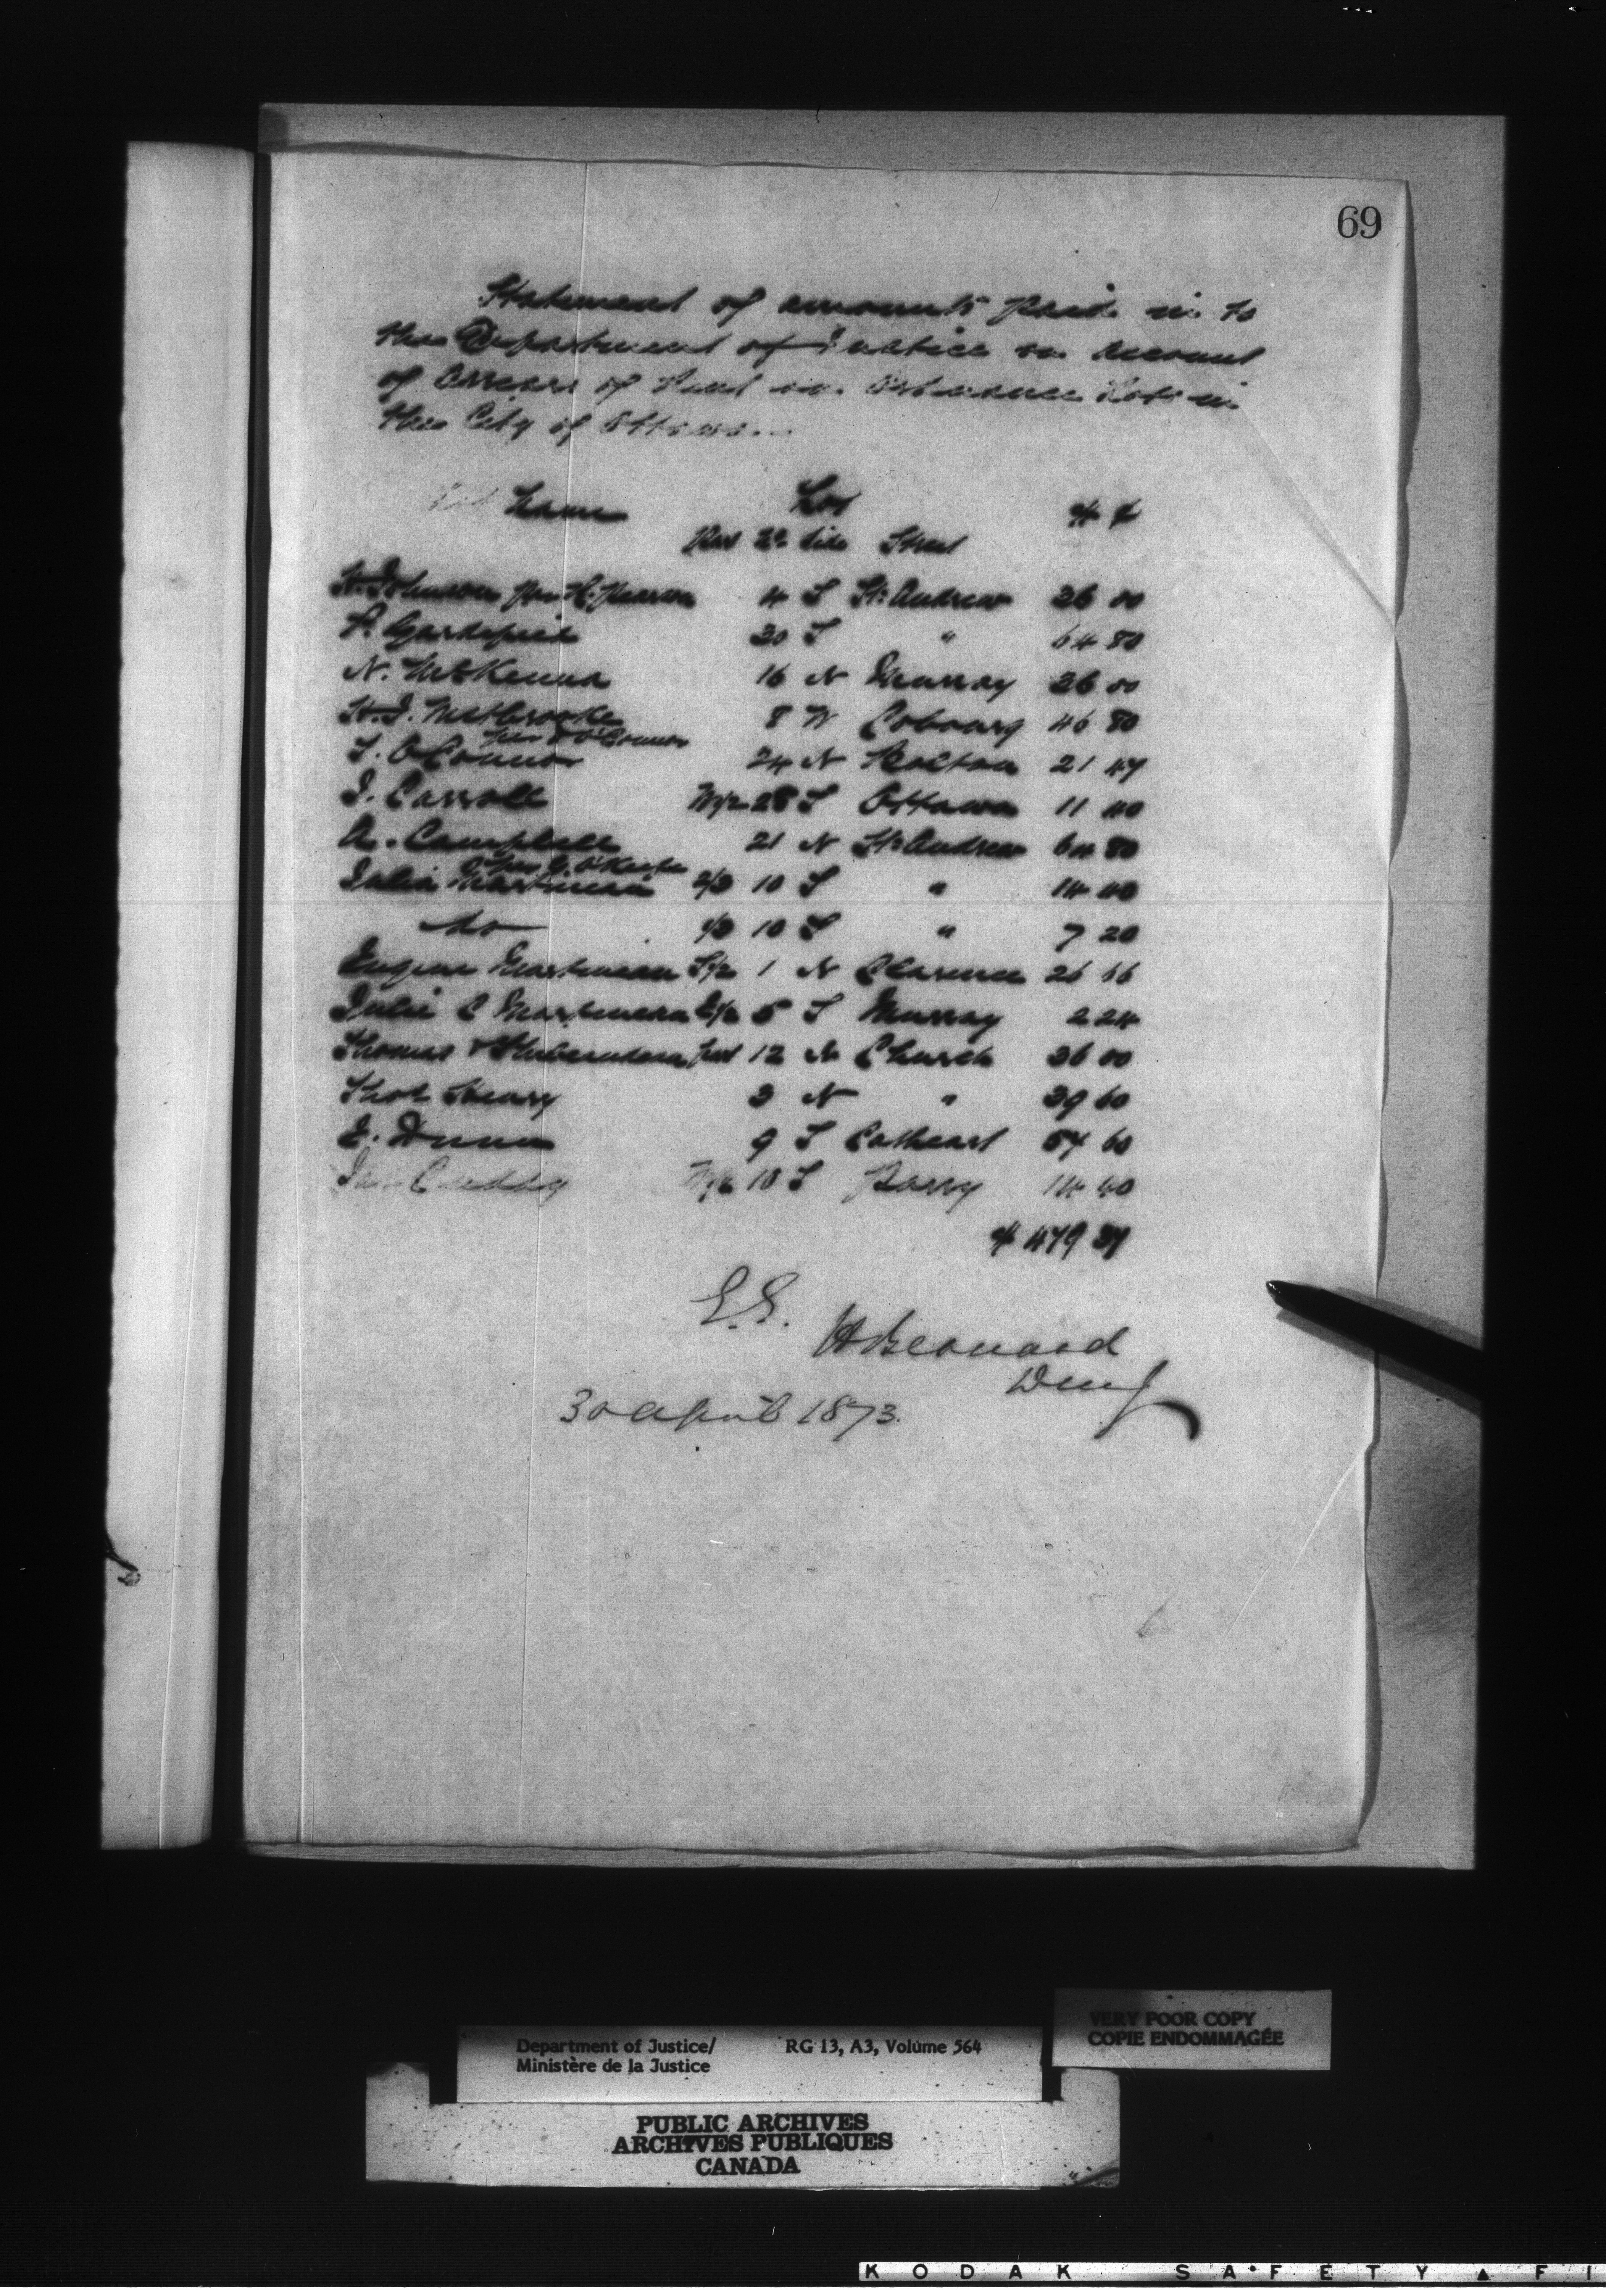 69
Statement of amounts paid in to
the Department of Justice on account
of Arrears of Rent on Ordnance Lots in
the City of Ottawa.
Name Lot $ ¢
Part No side Street
H. Johnson per H. Pearson 4 S St. Andrew 36 00
P. Gardepied 20 S " 64 80
N. McKenna 16 N Murray 36 00
8 W Cobourg 46 80
per O'Connor
T. O'Connor 24 N Bolton 21 47
J. Carroll W½ 28 S Ottawa 11 40
A. Campbell 21 N St. Andrew 64 80
per G. O'Keefe
Julia Martineau 2/3 10 S " 14 40
do 1/3 10 S " 7 20
Eugene Martineau S½ 1 N Clarence 26 66
Julie C Martineau E½ 5 S Murray 2 24
Thomas part 12 N Church 36 00
Thos Henry 3 N " 39 60
E. Dunn 9 S Cathcart 57 60
Cuddy W½ 18 S Barry 14 40
$ 479 37
E.E.
H Bernard
DMJ
30 April 1873.
Department of Justice/ RG 13, A3, Volume 564
Ministère de la Justice
VERY POOR COPY
COPIE ENDOMMAGÉE
PUBLIC ARCHIVES
ARCHIVES PUBLIQUES
CANADA
KODAK SAFETY ▲ FI